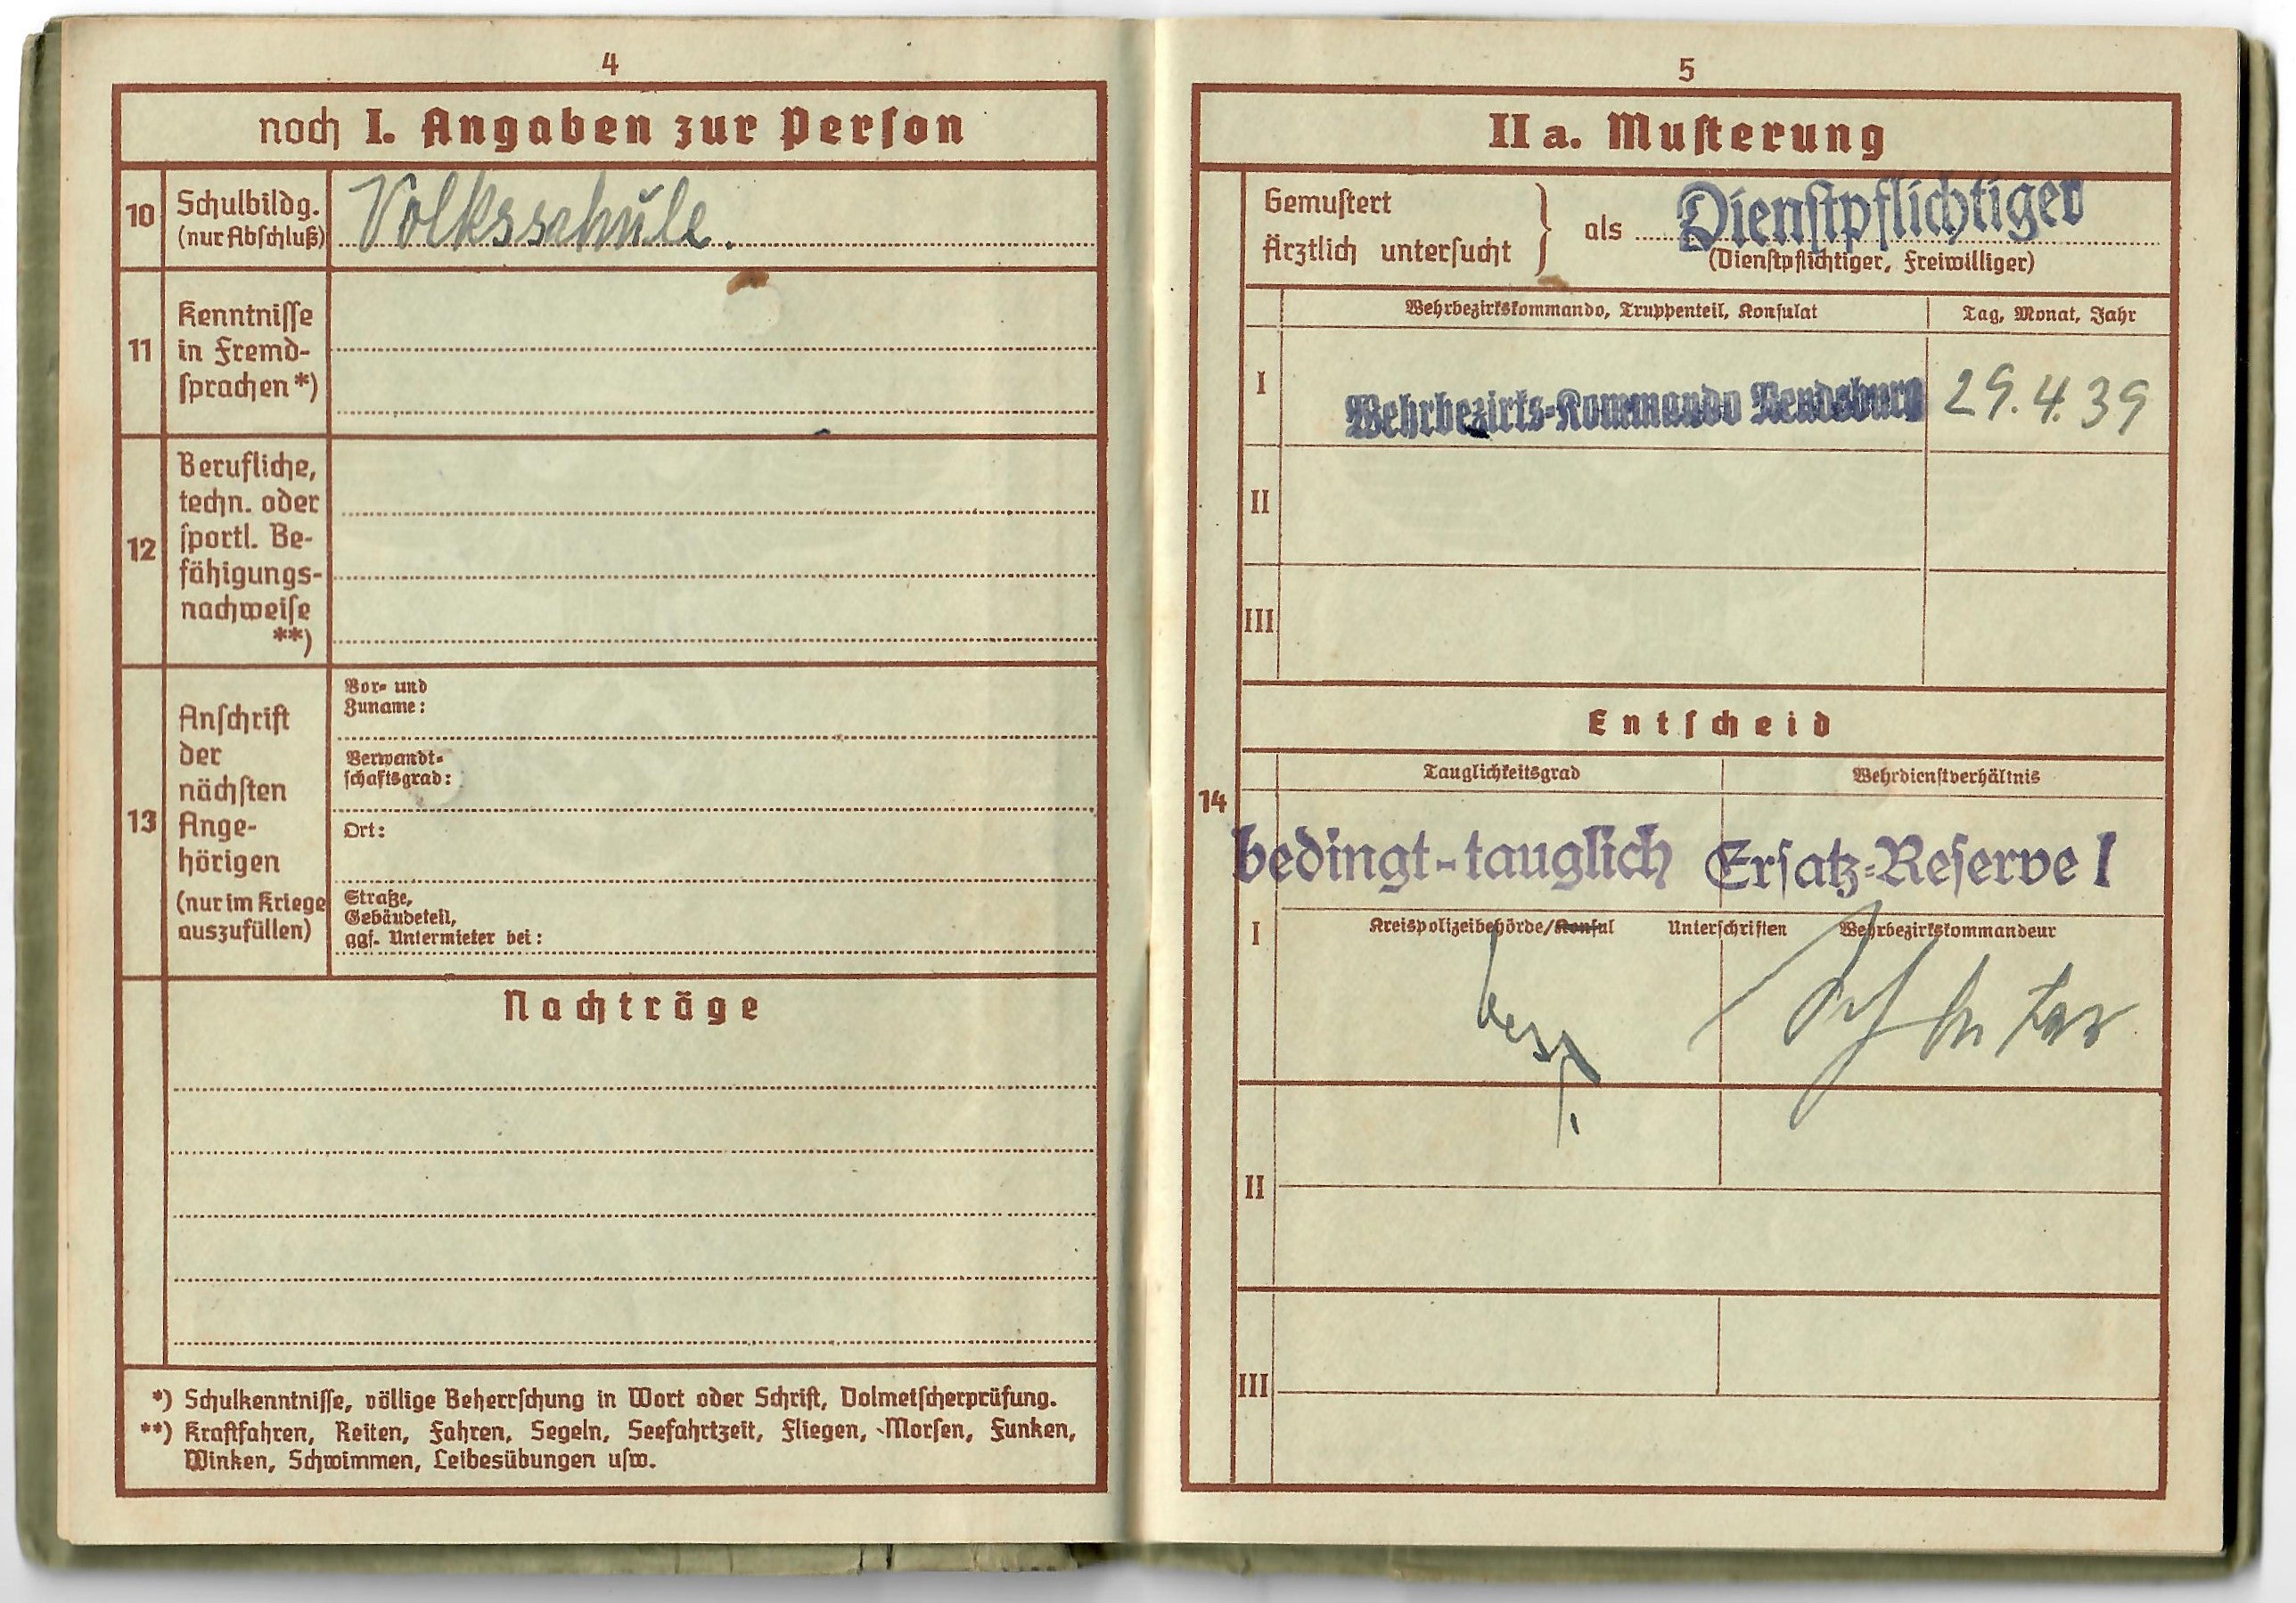 4
noch I. Angaben zur Person
10
Schulbildg.
(nur Abschluß)
Volksschule.
11
Kenntnisse
in Fremd-
sprachen *)
12
Berufliche,
techn. oder
sportl. Be-
fähigungs-
nachweise
**)
13
Anschrift
der
nächsten
Ange-
hörigen
(nur im Kriege
auszufüllen)
Vor- und
Zuname:
Verwandt-
schaftsgrad:
Ort:
Straße,
Gebäudeteil,
ggf. Untermieter bei:
Nachträge
*) Schulkenntnisse, völlige Beherrschung in Wort oder Schrift, Dolmetscherprüfung.
**) Kraftfahren, Reiten, Fahren, Segeln, Seefahrtzeit, Fliegen, Morsen, Funken,
Winken, Schwimmen, Leibesübungen usw.
5
II a. Musterung
Gemustert
Ärztlich untersucht
als Dienstpflichtiger
(Dienstpflichtiger, Freiwilliger)
Wehrbezirkskommando, Truppenteil, Konsulat Tag, Monat, Jahr
I Wehrbezirks-Kommando Rendsburg 29.4.39
II
III
Entscheid
14
Tauglichkeitsgrad Wehrdienstverhältnis
bedingt-tauglich Ersatz-Reserve I
I Kreispolizeibehörde/Konsul Unterschriften Wehrbezirkskommandeur
II
III